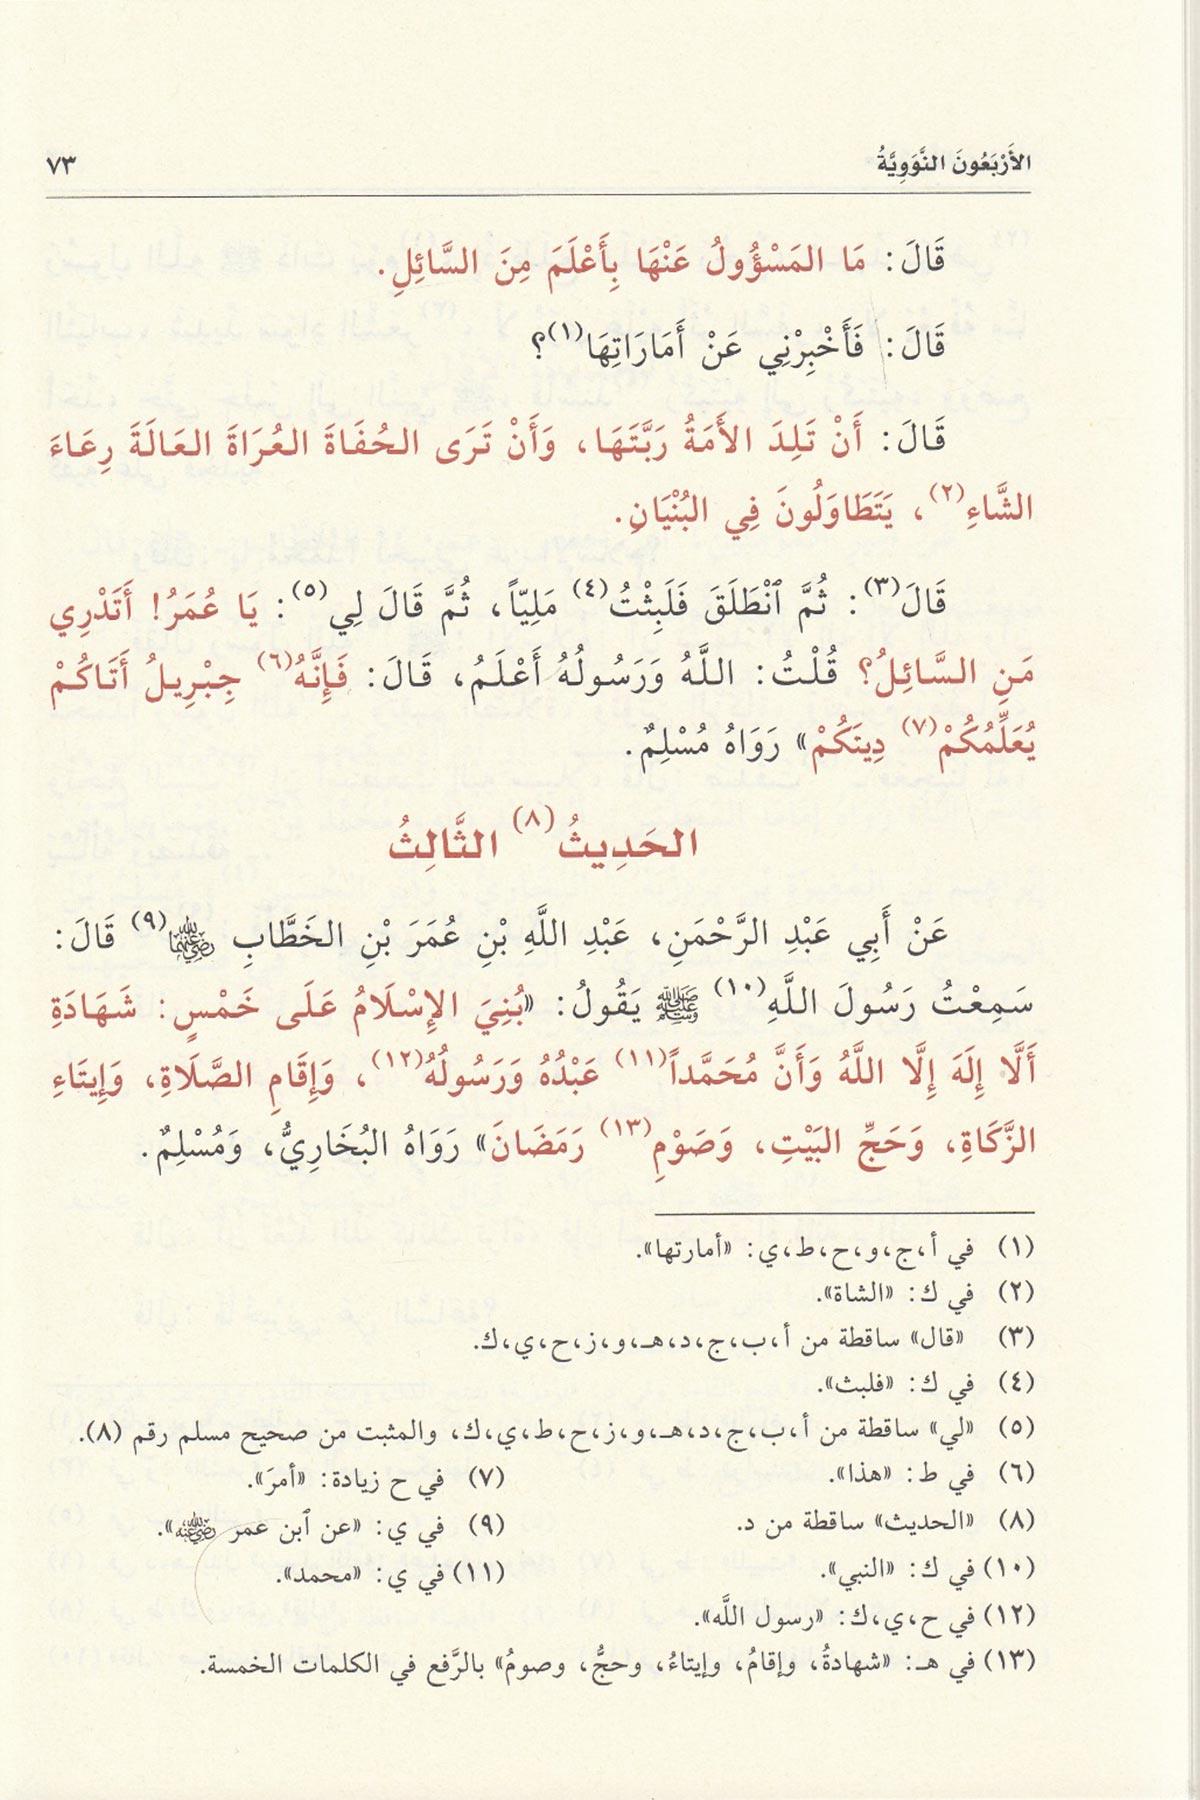 الأَرْبَعُونَ النَّوَوِيَّةُ ٧٣
قَالَ: مَا المَسْؤُولُ عَنْهَا بِأَعْلَمَ مِنَ السَّائِلِ.
قَالَ: فَأَخْبِرْنِي عَنْ أَمَارَاتِهَا(١)؟
قَالَ: أَنْ تَلِدَ الأَمَةُ رَبَّتَهَا، وَأَنْ تَرَى الحُفَاةَ العُرَاةَ العَالَةَ رِعَاءَ
الشَّاءِ(٢)، يَتَطَاوَلُونَ فِي البُنْيَانِ.
قَالَ(٣): ثُمَّ ٱنْطَلَقَ فَلَبِثْتُ(٤) مَلِيّاً، ثُمَّ قَالَ لِي(٥): يَا عُمَرُ! أَتَدْرِي
مَنِ السَّائِلُ؟ قُلْتُ: اللَّهُ وَرَسُولُهُ أَعْلَمُ، قَالَ: فَإِنَّهُ(٦) جِبْرِيلُ أَتَاكُمْ
يُعَلِّمُكُمْ(٧) دِينَكُمْ» رَوَاهُ مُسْلِمٌ.
الحَدِيثُ(٨) الثَّالِثُ
عَنْ أَبِي عَبْدِ الرَّحْمَنِ، عَبْدِ اللَّهِ بْنِ عُمَرَ بْنِ الخَطَّابِ رضي الله عنهما(٩) قَالَ:
سَمِعْتُ رَسُولَ اللَّهِ(١٠) ﷺ يَقُولُ: «بُنِيَ الإِسْلَامُ عَلَى خَمْسٍ: شَهَادَةِ
أَلَّا إِلَهَ إِلَّا اللَّهُ وَأَنَّ مُحَمَّداً(١١) عَبْدُهُ وَرَسُولُهُ(١٢)، وَإِقَامِ الصَّلَاةِ، وَإِيتَاءِ
الزَّكَاةِ، وَحَجِّ البَيْتِ، وَصَوْمِ(١٣) رَمَضَانَ» رَوَاهُ البُخَارِيُّ، وَمُسْلِمٌ.
(١) في أ،ج،و،ح،ط،ي: «أمارتها».
(٢) في ك: «الشاة».
(٣) «قال» ساقطة من أ،ب،ج،د،هـ،و،ز،ح،ي،ك.
(٤) في ك: «فلبث».
(٥) «لي» ساقطة من أ،ب،ج،د،هـ،و،ز،ح،ط،ي،ك، والمثبت من صحيح مسلم رقم (٨).
(٦) في ط: «هذا». (٧) في ح زيادة: «أمرَ».
(٨) «الحديث» ساقطة من د. (٩) في ي: «عن ٱبن عمر رضي الله عنه».
(١٠) في ك: «النبي». (١١) في ي: «محمد».
(١٢) في ح،ي،ك: «رسول الله».
(١٣) في هـ: «شهادةُ، وإقامُ، وإيتاءُ، وحجُّ، وصومُ» بالرَّفع في الكلمات الخمسة.